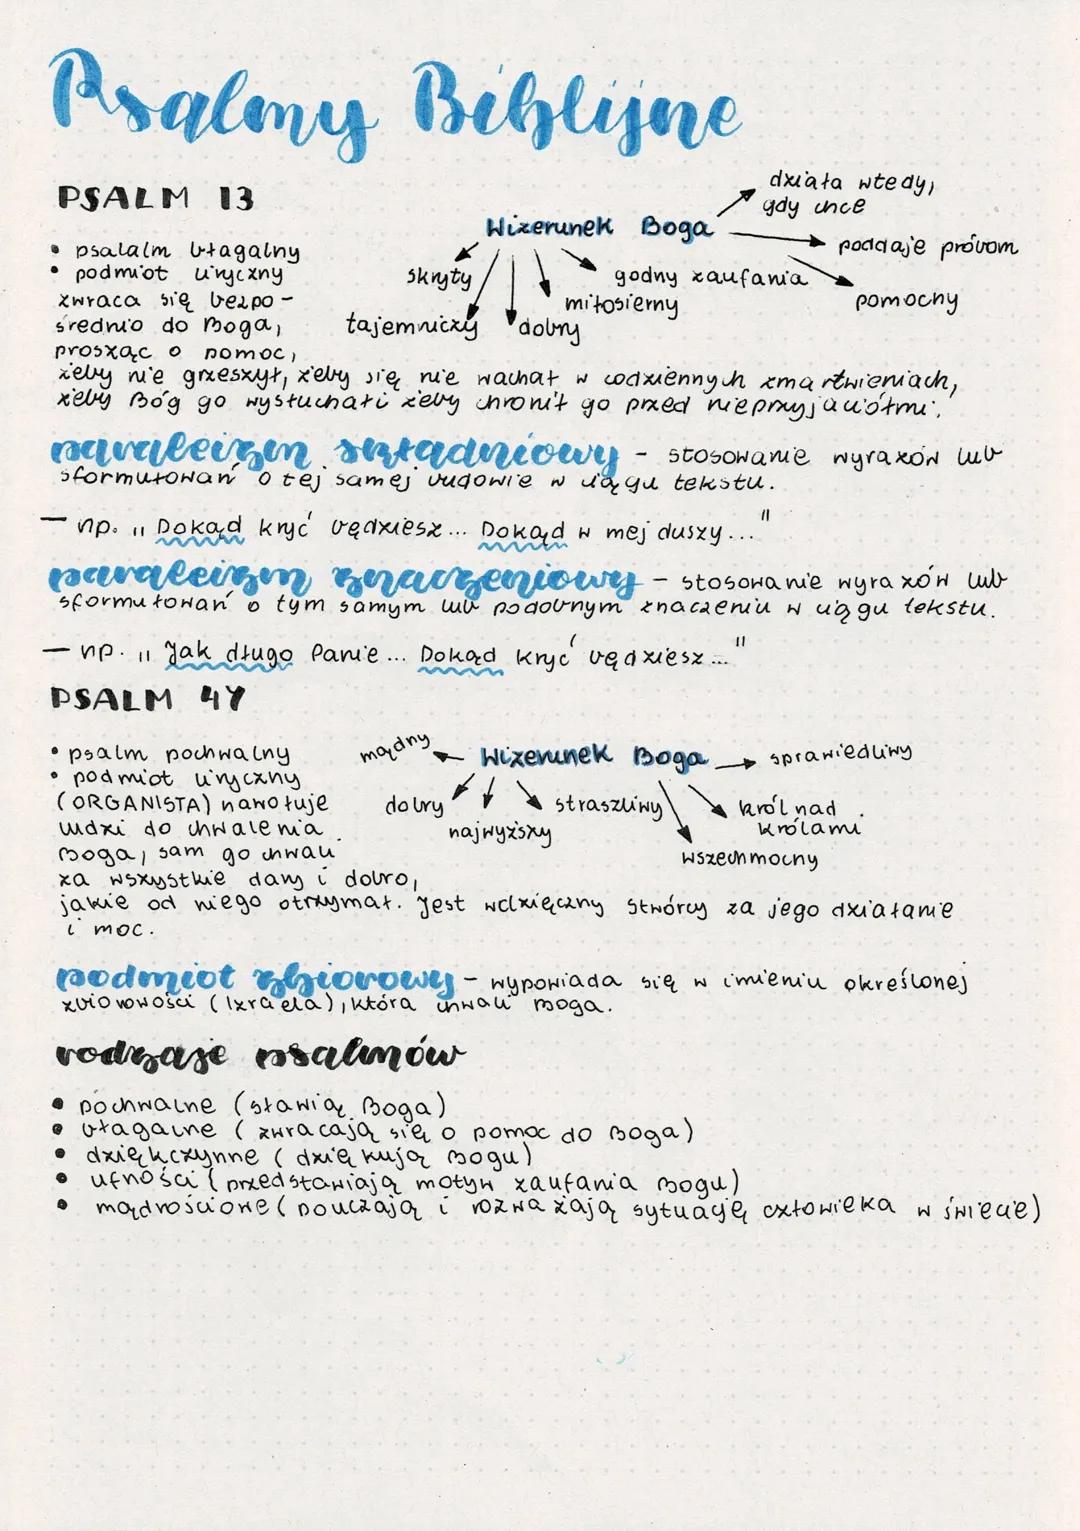 Psalmy Biblijne
PSALM 13
• psalalm błagalny
• podmiot liryczny
zwraca się bezpo-
średnio do Boga,
prosząc o pomoc,
żeby nie grzeszył, żeby się nie wachał w codziennych zmartwieniach,
żeby Bóg go wysłuchał i żeby chronił go przed nieprzyjaciółmi.
Wizerunek Boga
działa wtedy,
gdy chce
poddaje próbom
pomocny
godny zaufania
miłosierny
dobry
tajemniczy
skryty
paraleizm składniowy - stosowanie wyrazów lub
sformułowań o tej samej budowie w ciągu tekstu.
— np. „Dokąd kryć będziesz... Dokąd w mej duszy..."
paraleizm znaczeniowy - stosowanie wyrazów lub
sformułowań o tym samym lub podobnym znaczeniu w ciągu tekstu.
— np. „Jak długo Panie... Dokąd kryć będziesz..."
PSALM 47
• psalm pochwalny
• podmiot liryczny
(ORGANISTA) nawołuje
ludzi do chwalenia
Boga, sam go chwali
za wszystkie dary i dobro,
jakie od niego otrzymał. Jest wdzięczny Stwórcy za jego działanie
i moc.
Wizerunek Boga
mądry
dobry
najwyższy
straszliwy
wszechmocny
król nad
królami
sprawiedliwy
podmiot zbiorowy - wypowiada się w imieniu określonej
zbiorowości (Izraela), która chwali Boga.
rodzaje psalmów
• pochwalne (sławią Boga)
• błagalne (zwracają się o pomoc do Boga)
• dziękczynne (dziękują Bogu)
• ufności (przedstawiają motyw zaufania Bogu)
• mądrościowe (pouczają i rozważają sytuację człowieka w świecie)